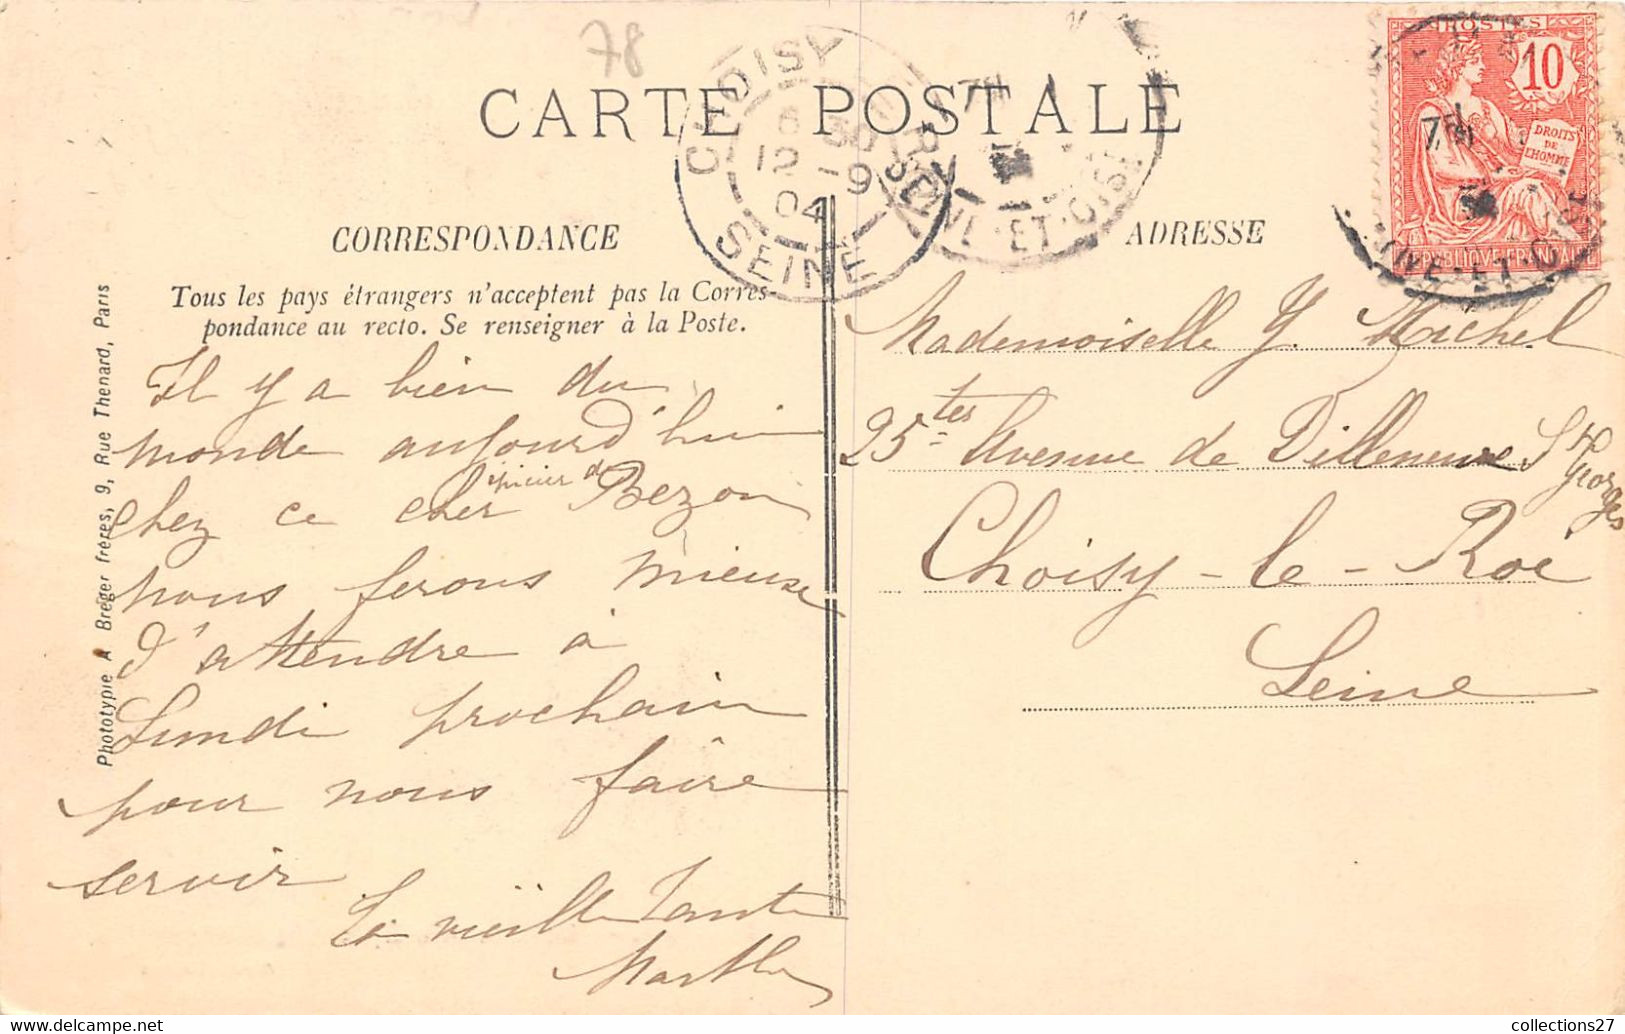 78
CARTE POSTALE
CHOISY
12 -9
04
SEINE
ET-OISE
POSTES
10
DROITS
DE
L'HOMME
REPUBLIQUE FRANCAISE
CORRESPONDANCE
Tous les pays étrangers n'acceptent pas la Corres-
pondance au recto. Se renseigner à la Poste.
Phototypie A Breger frères, 9, Rue Thenard, Paris
Il y a bien du
monde aujourd'hui
chez ce cher épicier de Bezon
nous ferons mieux
d'attendre à
Lundi prochain
pour nous faire
servir
La vieille Tante
Marthe
ADRESSE
Mademoiselle Y. Michel
25 ter Avenue de Villeneuve St Georges
Choisy-le-Roi
Seine
collections27